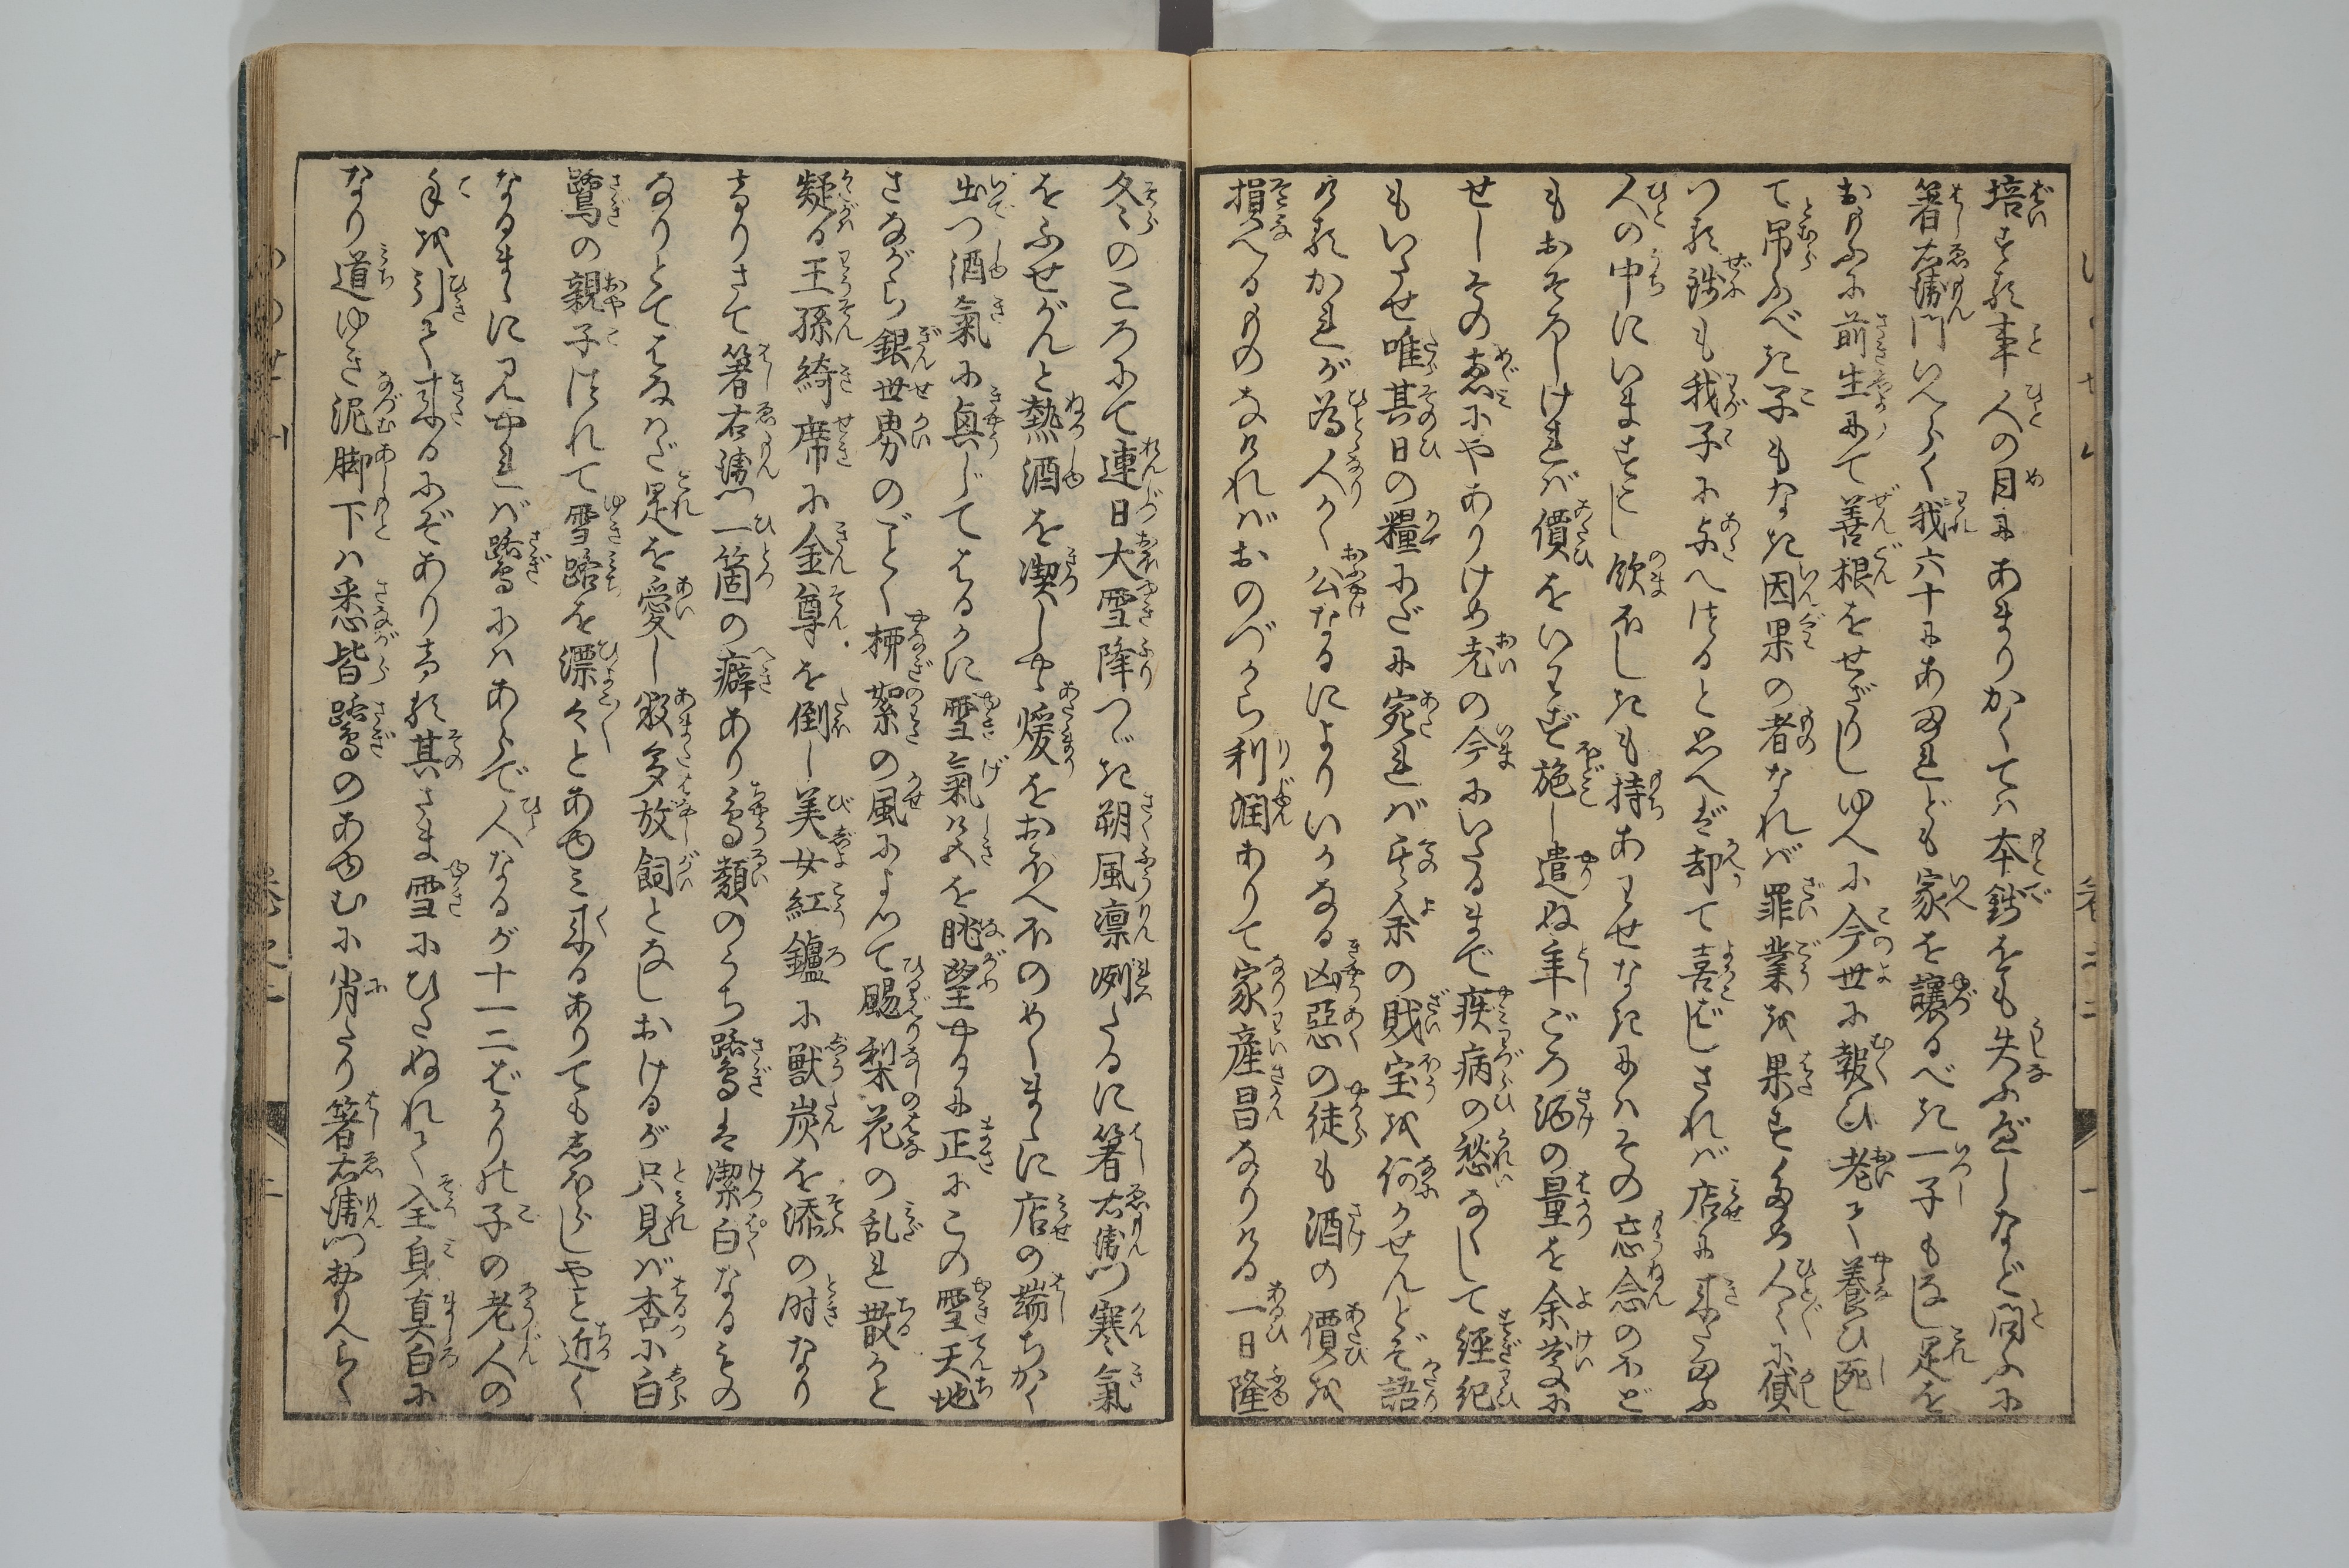 培する事人の目にあまりかくては本銭をも失ふべしなど問ふに
箸右衛門いへらく我六十にあまれども家を譲るべき一子もなし是を
おもふに前生にて善根をせざりしゆへに今世に報ひ老て養ひ死し
て吊ふべき子もなき因果の者なれば罪業を果すため人々に貸
つる銭も我子に与へつると思へば却て喜ばしされば店に来たまふ
人の中にいますこし飲ほしきも持あわせなきにはその忘念のほど
もおそろしければ價をいわず施し遣ぬ年ごろ酒の量を余慶に
せしその恵にやありけめ老の今にいたるまで疾病の愁なくして経紀
もいたせ唯其日の糧だに宛れば其余の財宝を何かせんとぞ語
りけるかれが為人かく公なるによりいかなる凶惡の徒も酒の價を
損へるものなければおのづから利潤ありて家産昌なりける一日隆
冬のころにて連日大雪降つゞき朔風凛冽たるに箸右衛門寒氣
をふせがんと熱酒を喫しやゝ煖をおぼへほのめくまゝに店の端ちかく
出つ酒氣に臭じてはるかに雪氣けしきを眺望やるに正にこの雪天地
さながら銀世界のごとく柳絮の風によつて颺梨花の乱れ散かと
疑る王孫綺席に金尊を倒し美女紅鑪に獣炭を添の時なり
けりさて箸右衛門一箇の癖あり鳥類のうち鷺は潔白なるもの
なりとてはなはだ是を愛し數多放飼となしおけるが只見ば杳に白
鷺の親子つれて雪路を漂々とあゆみ来るありても志ほらしやと近く
なるまゝに見やれば鷺にはあらで人なるが十一二ばかりの子の老人の
手を引て来るにぞありける其さま雪にひたぬれて全身真白に
なり道ゆき泥脚下は悉皆鷺のあゆむに肖たり箸右衛門おもへらく